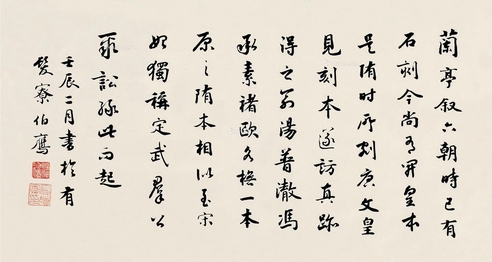 蘭亭叙六朝時已有
石刻今尚有開皇本
是隋時所刻唐文皇
見刻本遂訪真跡
得之命湯普澈馮
承素褚歐各橅一本
原隋本相似至宋
始獨稱定武羣公
聚訟緣此而起
壬辰二月書於有
髮寮伯鷹